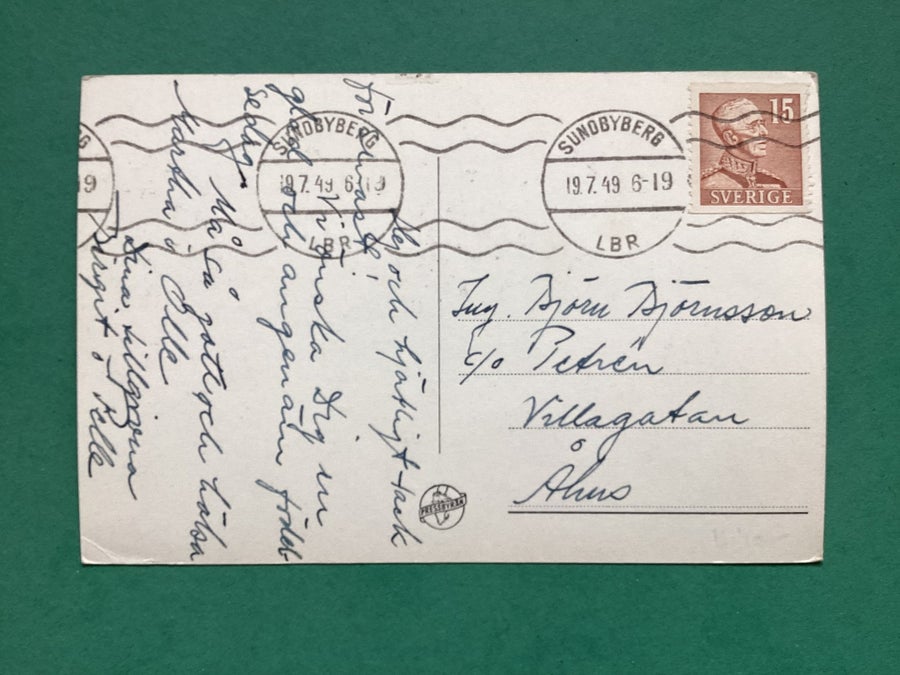 SUNDBYBERG
19.7.49 6-19
LBR
SUNDBYBERG
19.7.49 6-19
LBR
G
19
15
SVERIGE
Hej och hjärtligt tack
för senast!
Vi önska Dig en
glad och angenäm födel-
sedag.
Må så gott och hälsa
Märtha o Olle
Dina tillgivna
Birgit o Pelle
Ing. Björn Björnsson
c/o Petrén
Villagatan
Åhus
PRESSBYRÅN